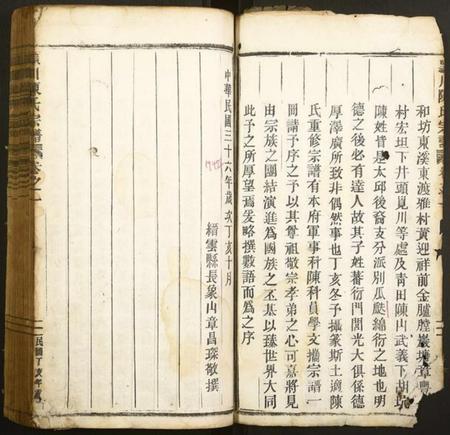 川陳氏宗譜
和坊東溪東渡雅村黃迎祥前金臚膛巖塘章
村宏坦下井頭覓川等處及青田陳山武義下胡坑
陳姓皆是太邱後裔支分派別瓜瓞綿衍之地也明
德之後必有達人故其子姓蕃衍門閭光大俱係德
厚澤廣所致非偶然事也丁亥冬予攝篆斯土適陳
氏重修宗譜有本府軍事科陳科員學文攜宗譜一
冊請予序之予以其尊祖敬宗孝弟之心可嘉將見
由宗族之團結演進為國族之丕基以臻世界大同
此予之所厚望焉爰略撰數語而為之序
中華民國三十六年歲次丁亥十月
1947
縉雲縣長象山章昌琛敬撰
川陳氏宗譜
卷之一
民國丁亥年